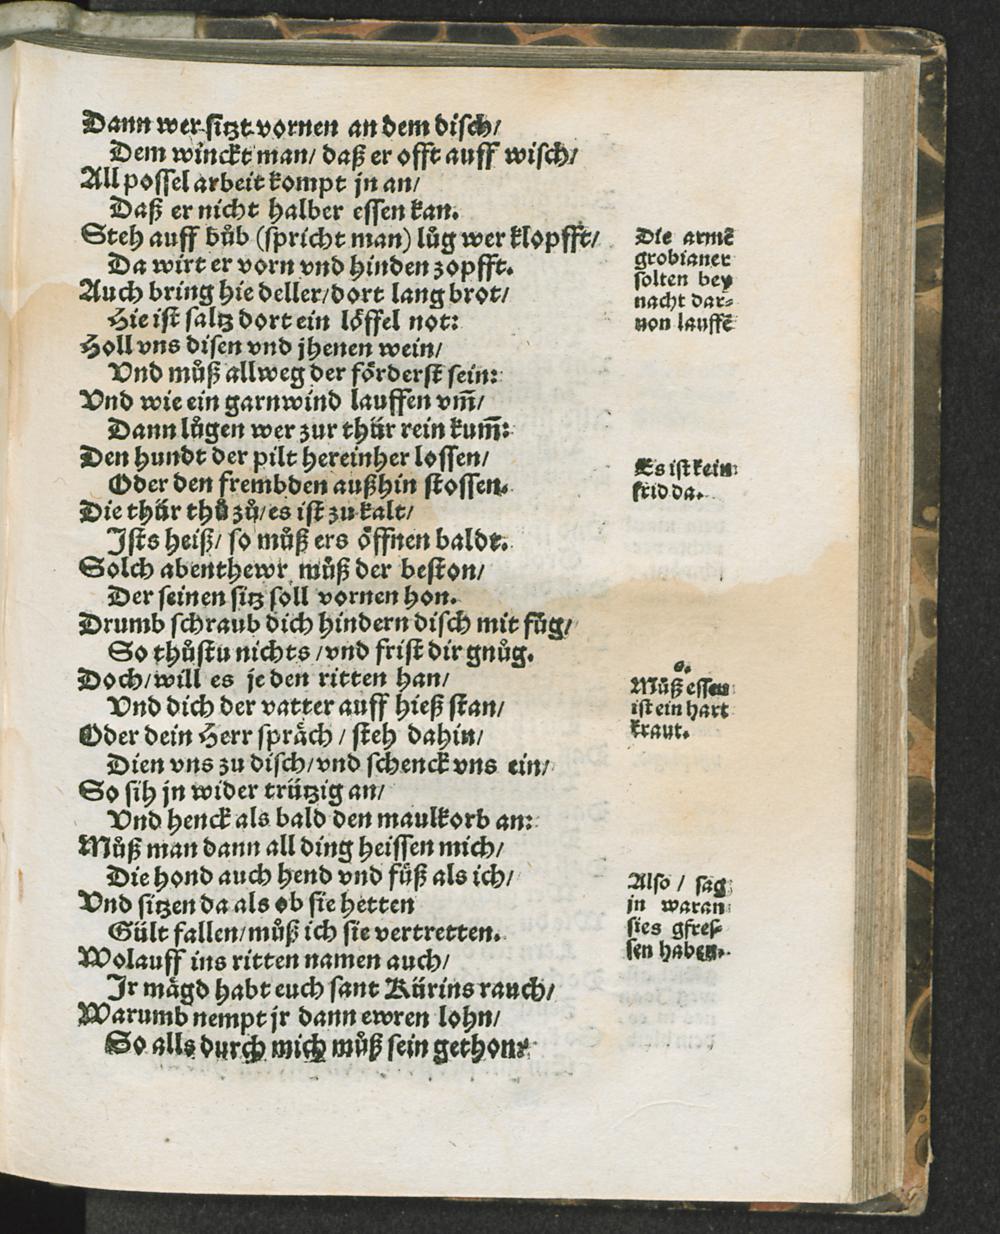 Dann wer sitzt vornen an dem disch/
Dem winckt man/ daß er offt auff wisch/
All possel arbeit kompt jn an/
Daß er nicht halber essen kan.
Steh auff bůb (spricht man) lůg wer klopfft/
Da wirt er vorn vnd hinden zopfft.
Auch bring hie deller/dort lang brot/
Hie ist saltz dort ein löffel not:
Holl vns disen vnd jhenen wein/
Vnd můß allweg der förderst sein:
Vnd wie ein garnwind lauffen vm̃/
Dann lůgen wer zur thür rein kum̃:
Den hundt der pilt hereinher lossen/
Oder den frembden außhin stossen.
Die thür thů zů/es ist zu kalt/
Ists heiß/ so můß ers öffnen baldt.
Solch abenthewr můß der beston/
Der seinen sitz soll vornen hon.
Drumb schraub dich hindern disch mit fůg/
So thůstu nichts /vnd frist dir gnůg.
Doch/will es je den ritten han/
Vnd dich der vatter auff hieß stan/
Oder dein Herr spräch / steh dahin/
Dien vns zu disch/vnd schenck vns ein/
So sih jn wider trützig an/
Vnd henck als bald den maulkorb an:
Můß man dann all ding heissen mich/
Die hond auch hend vnd füß als ich/
Vnd sitzen da als ob sie hetten
Gült fallen/můß ich sie vertretten.
Wolauff ins ritten namen auch/
Ir mägd habt euch sant Kürins rauch/
Warumb nempt jr dann ewren lohn/
So alls durch mich můß sein gethon:
Die armẽ
grobianer
solten bey
nacht dar=
uon lauffẽ
Es ist kein
frid da.
Můß essen
ist ein hart
kraut.
Also / sag
jn waran
sies gfres=
sen haben.